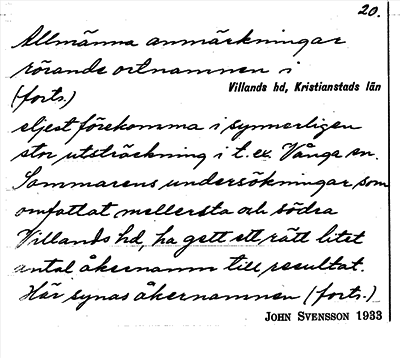 20.
Allmänna anmärkningar
rörande ortnamnen i
Villands hd, Kristianstads län
(forts.)
eljest förekomma i synnerligen
stor utsträckning i t. ex. Vånga sn.
Sommarens undersökningar, som
omfattat mellersta och södra
Villands hd, ha gett ett rätt litet
antal åkernamn till resultat.
Här synas åkernamnen (forts.)
JOHN SVENSSON 1933